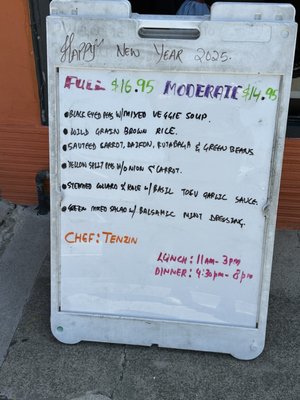 Happy New Year 2025.
FULL $16.95 MODERATE $14.95
• BLACK EYED PEAS W/ MIXED VEGGIE SOUP.
• WILD GRAIN BROWN RICE.
• SAUTEED CARROT, DAIKON, RUTABAGA & GREEN BEANS
• YELLOW SPLIT PEAS W/ ONION & CARROT.
• STEAMED COLLARD & KALE W/ BASIL TOFU GARLIC SAUCE.
• GREEN MIXED SALAD W/ BALSAMIC MINT DRESSING.
CHEF: TENZIN
LUNCH: 11am-3pm
DINNER: 4:30pm-8pm